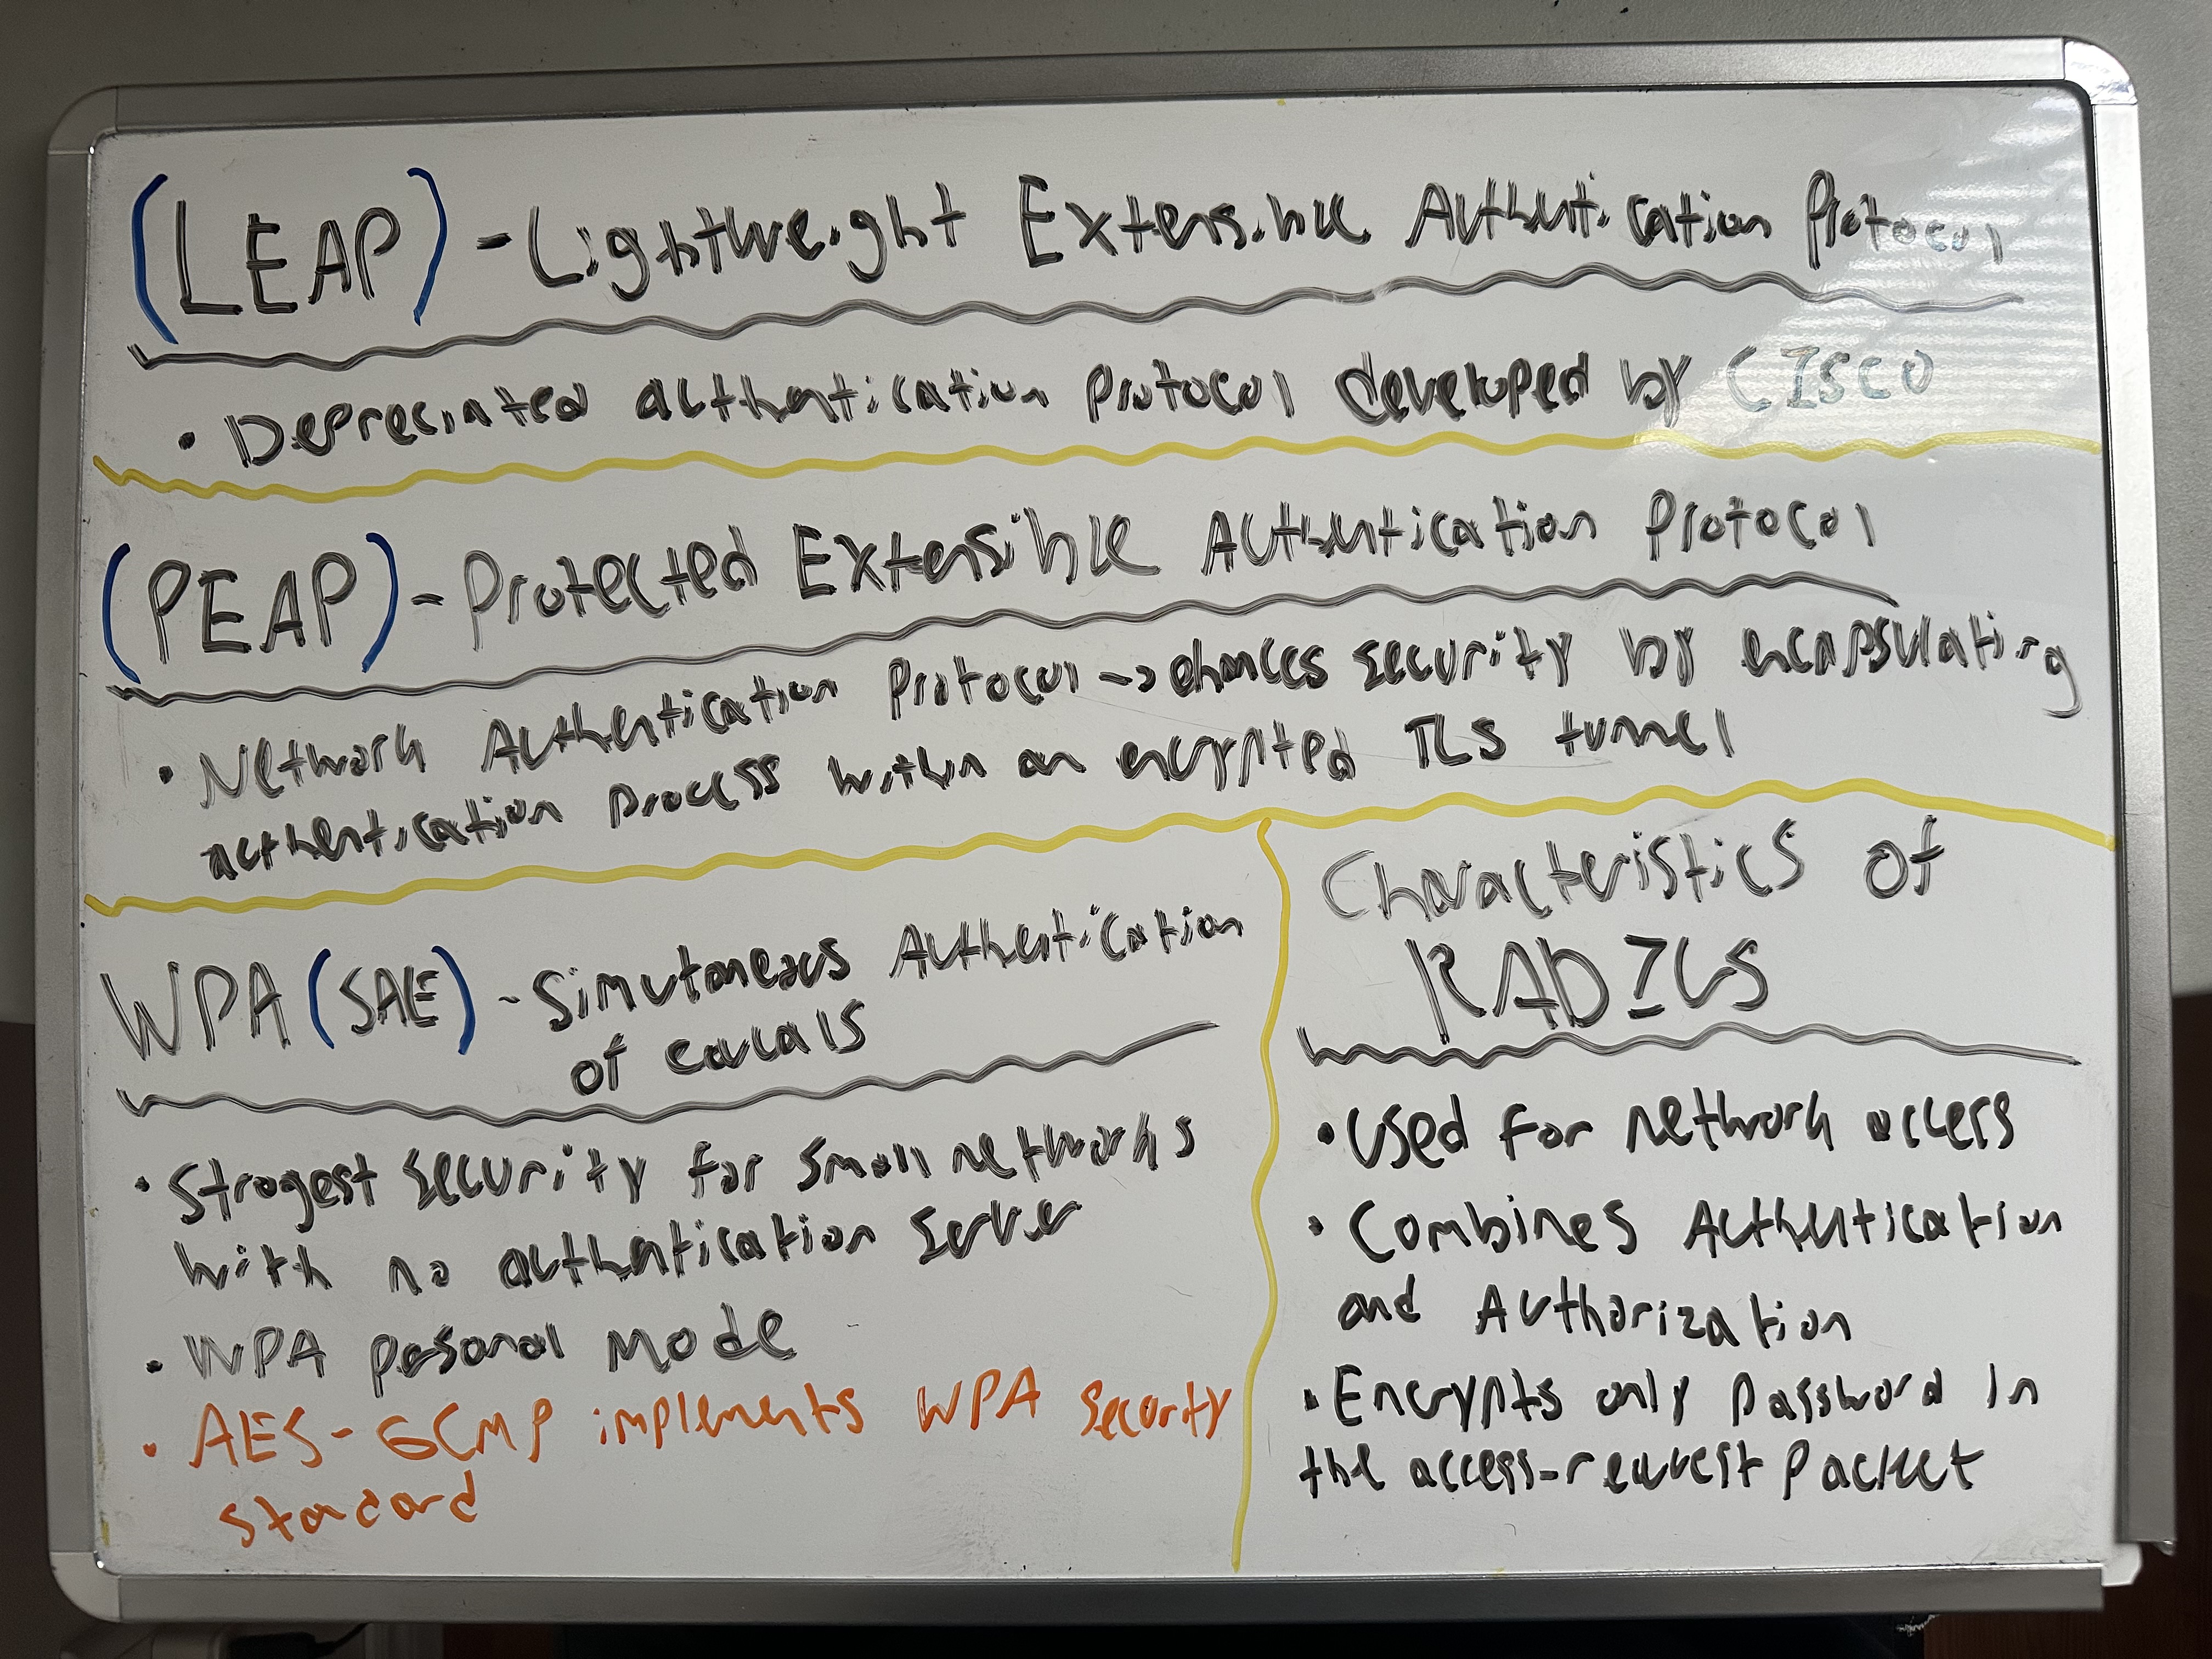 (LEAP) - Lightweight Extensible Authentication Protocol
• Depreciated authentication protocol developed by CISCO
(PEAP) - Protected Extensible Authentication Protocol
• Network Authentication Protocol -> ehances security by encapsulating
authentication process within an encrypted TLS tunnel
WPA (SAE) - Simutaneous Authentication
of equals
• Strogest security for small networks
with no authentication server
• WPA personal mode
• AES-GCMP implements WPA security
standard
Characteristics of
RADIUS
• Used for network access
• Combines Authentication
and Authorization
• Encrypts only password in
the access-request packet